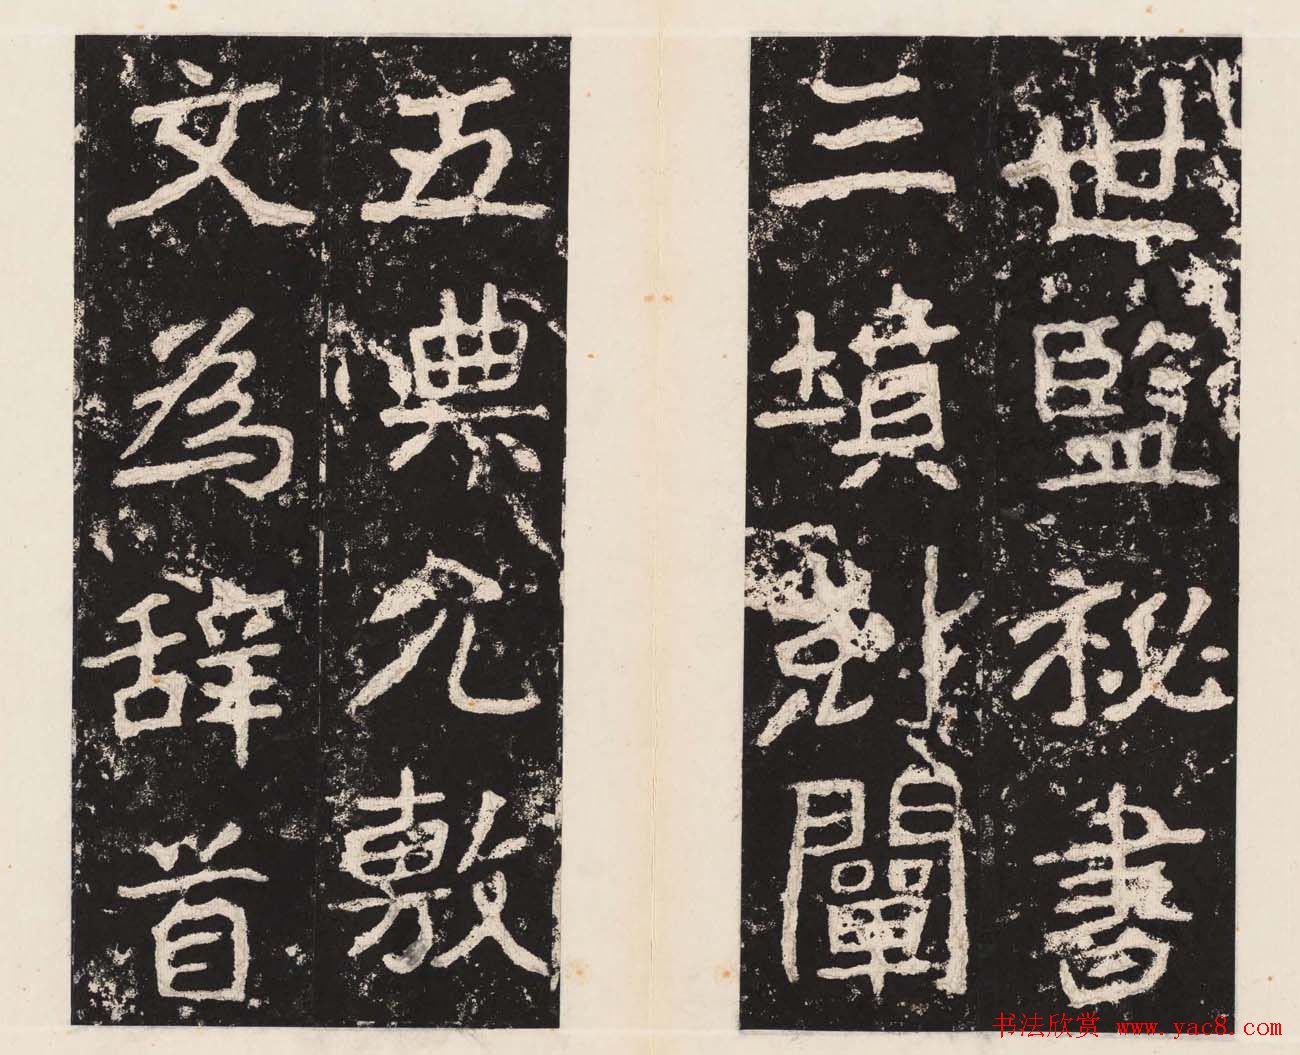 世監祕書
三墳剋闡
五典允敷
文為辭首
书法欣赏 www.yac8.com